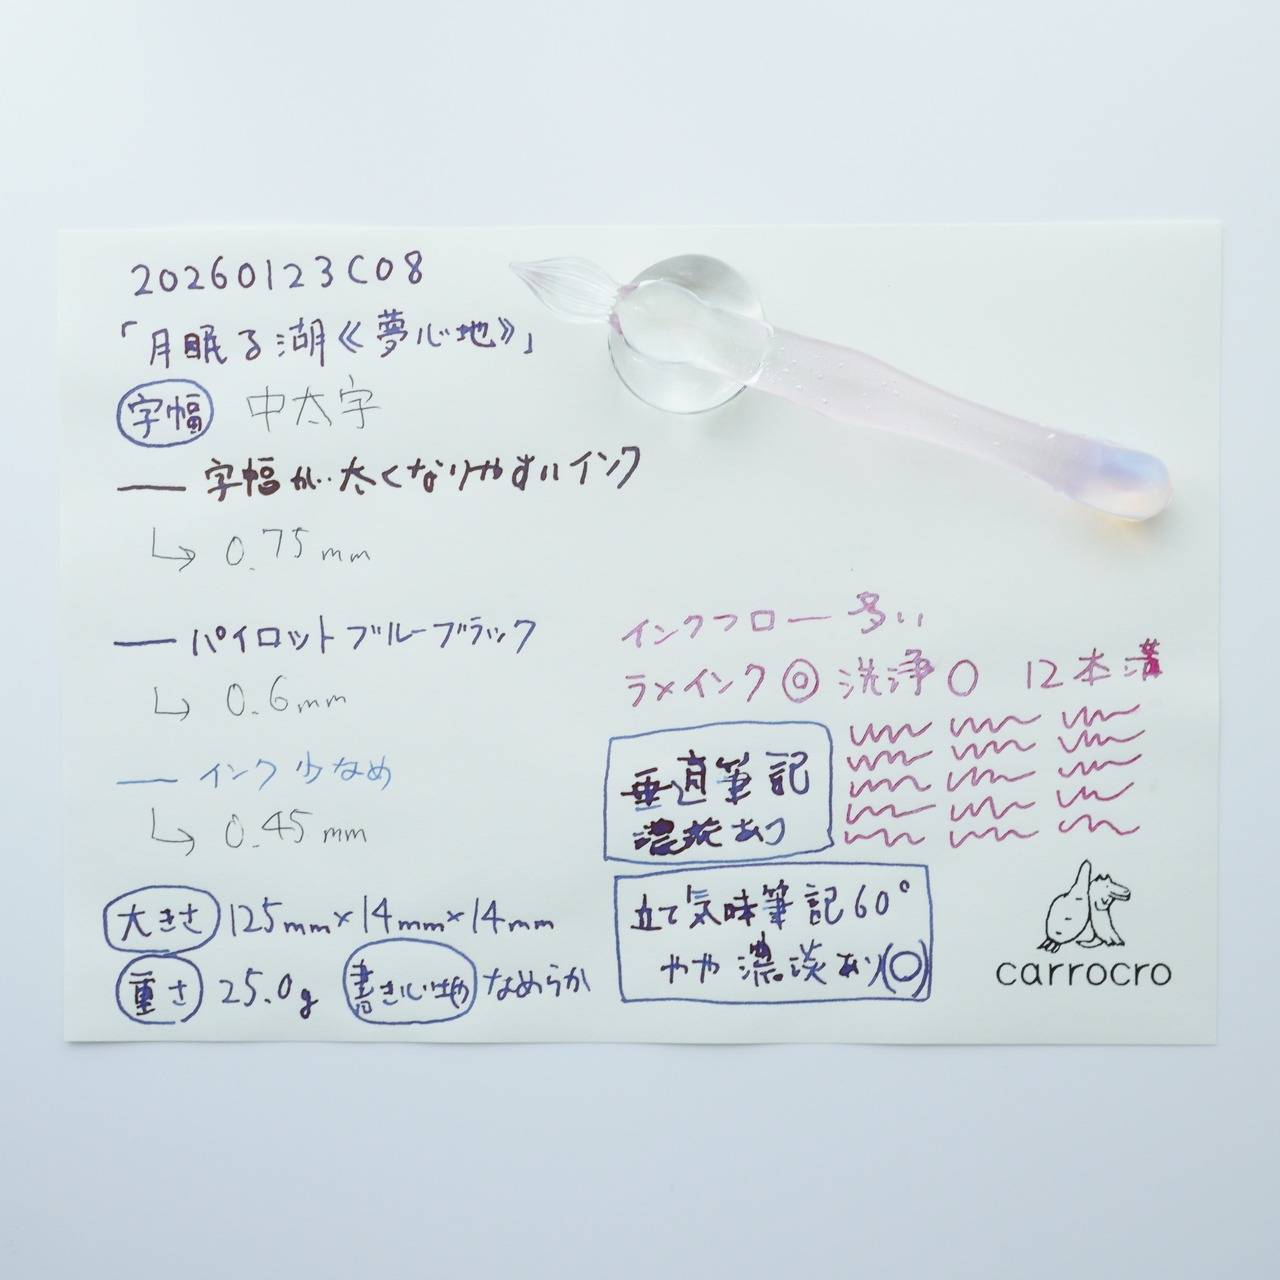 20260123C08
「月眠る湖《夢心地》」
字幅 中太字
— 字幅が太くなりやすいインク
↳ 0.75mm
— パイロットブルーブラック
↳ 0.6mm
— インク少なめ
↳ 0.45mm
大きさ 125mm×14mm×14mm
重さ 25.0g 書き心地 なめらか
インクフロー 多い
ラメインク ◎ 洗浄 ○ 12本溝
垂直筆記
濃淡あり
立て気味筆記60°
やや濃淡あり(○)
carrocro